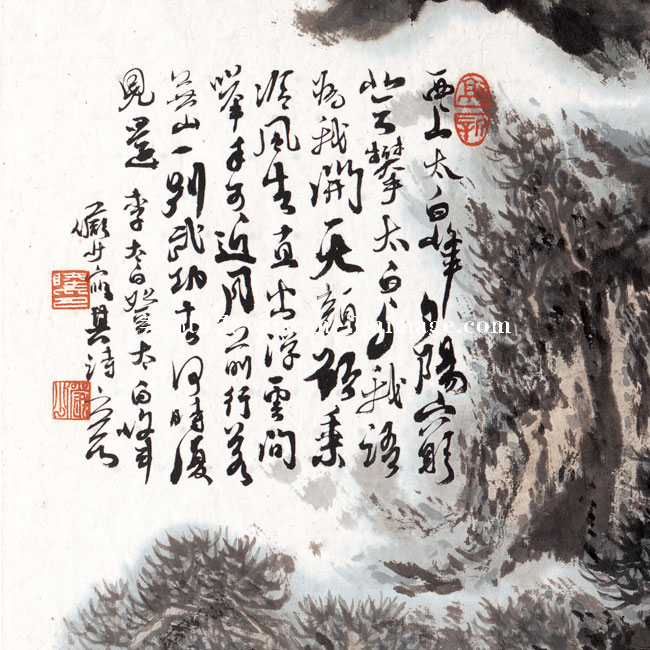 西上太白峰夕陽窮
登攀太白与我語
為我開天顏願乘
泠風去直出浮雲間
舉手可近月前行若
無山一別武功去何時復
見還 李太白登太白峰
其詩意